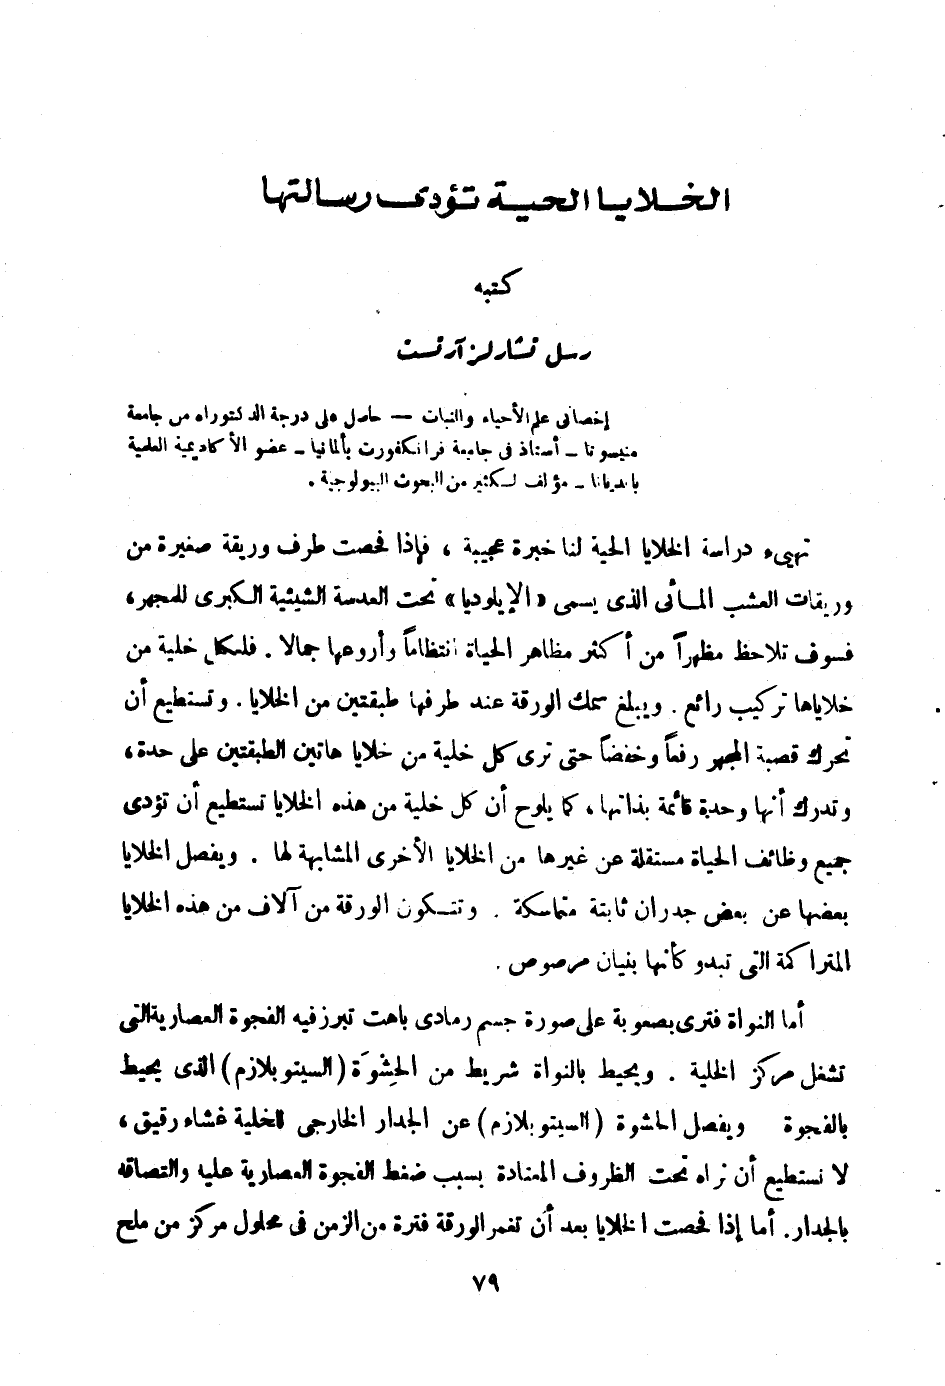 الخلايا الحية تؤدى رسالتها
كتبه
رسل تشارلز آرتست
إخصائى علم الأحياء والنبات — حاصل على درجة الدكتوراه من جامعة
منيسوتا – أستاذ فى جامعة فرانكفورت بألمانيا – عضو الأكاديمية العلمية
بانديانا – مؤلف لكثير من البحوث البيولوجية .
تهيىء دراسة الخلايا الحية لنا خبرة عجيبة ، فإذا فحصت طرف وريقة صغيرة من
وريقات العشب المائى الذى يسمى «الإيلوديا» تحت العدسة الشيئية الكبرى للمجهر،
فسوف تلاحظ مظهراً من أكثر مظاهر الحياة انتظاماً وأروعها جمالا . فلكل خلية من
خلاياها تركيب رائع . ويبلغ سمك الورقة عند طرفها طبقتين من الخلايا . وتستطيع أن
تحرك قصبة المجهر رفعاً وخفضاً حتى ترى كل خلية من خلايا هاتين الطبقتين على حدة،
وتدرك أنها وحدة قائمة بذاتها، كما يلوح أن كل خلية من هذه الخلايا تستطيع أن تؤدى
جميع وظائف الحياة مستقلة عن غيرها من الخلايا الأخرى المشابهة لها . ويفصل الخلايا
بعضها عن بعض جدران ثابتة متماسكة . وتتكون الورقة من آلاف من هذه الخلايا
المتراكمة التى تبدو كأنها بنيان مرصوص .
أما النواة فترى بصعوبة على صورة جسم رمادى باهت تبرز فيه الفجوة العصارية التى
تشغل مركز الخلية . ويحيط بالنواة شريط من الحِشْوَة (السيتوبلازم) الذى يحيط
بالفجوة ويفصل الحشوة (السيتوبلازم) عن الجدار الخارجى للخلية غشاء رقيق ،
لا نستطيع أن نراه تحت الظروف المعتادة بسبب ضغط الفجوة العصارية عليه والتصاقه
بالجدار. أما إذا فحصت الخلايا بعد أن تغمر الورقة فترة من الزمن فى محلول مركز من ملح
٧٩